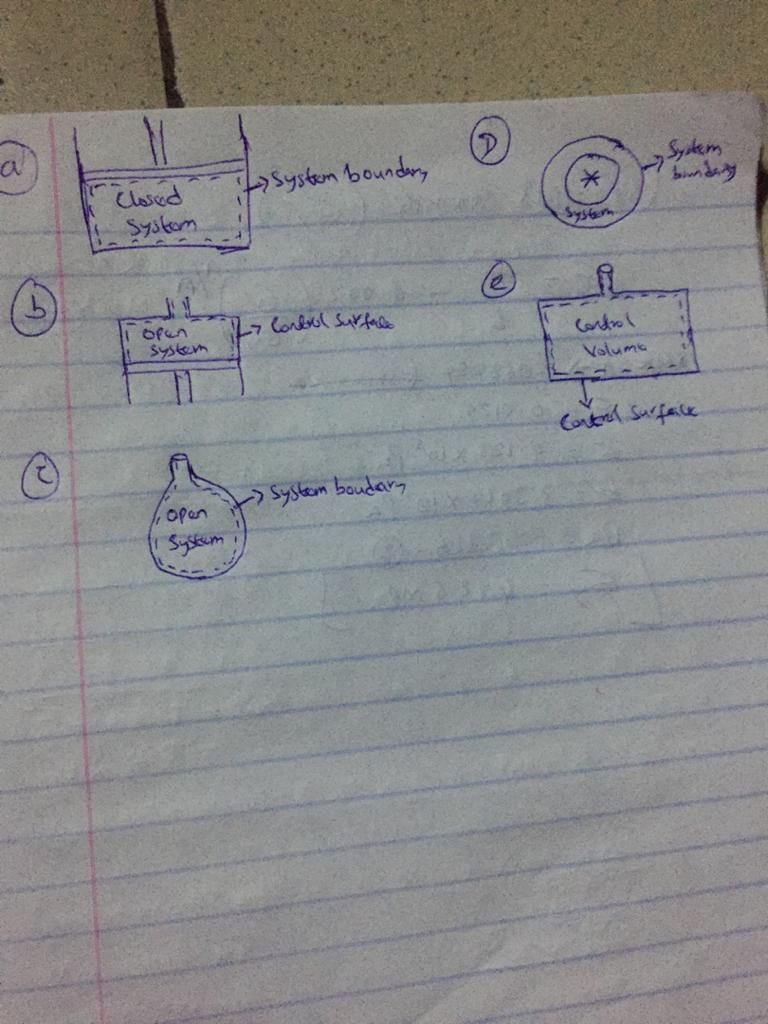 a
Closed
System
System boundary
b
Open
System
Control Surface
c
Open
System
System boudary
D
System
System
boundary
e
Control
Volume
Control Surface